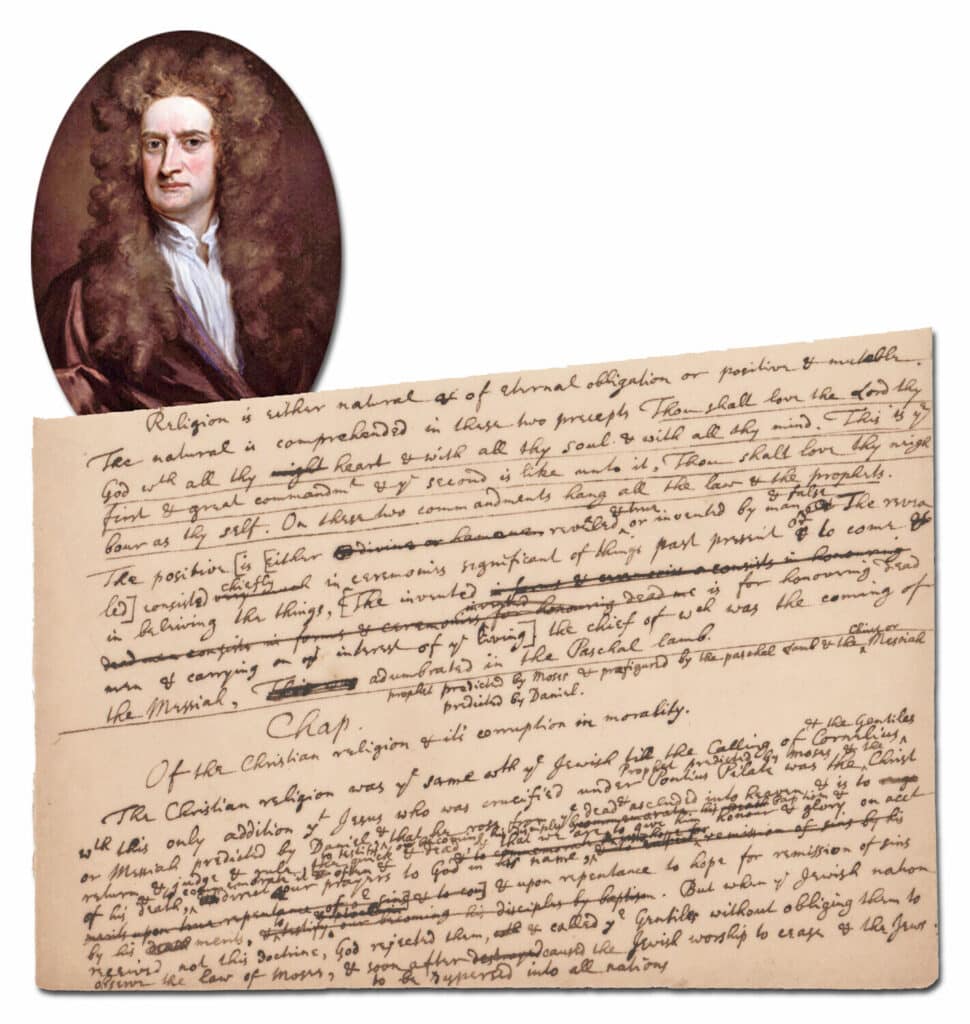 Religion is either natural & of eternal obligation or positive & mutable.
The natural is comprehended in these two precepts Thou shall love the Lord thy
God wth all thy might heart & with all thy soul & with all thy mind. This is ye
first & great commandmt & ye second is like unto it, Thou shalt love thy neigh
bour as thy self. On these two commandments hang all the law & the prophets.
& true & false
The positive [is [either divine or humane revealed, or invented by man The revea
led] consisted chiefly in ceremonies significant of things past present or & to come &
in beliving the things, [The invented is forms & ceremonies consists in honouring
dead men consists in forms & ceremonies for honouring dead me is for honouring dead
invented
men & carrying on ye interest of ye living] the chief of wch was the coming of
the Messiah, adumbrated in the Paschal lamb.
prophet predicted by Moses & prefigured by the paschal lamb & the Messiah
predicted by Daniel.
Chap.
Of the Christian religion & it's corruption in morality.
& the Gentiles
The Christian religion was ye same wth ye Jewish till the Calling of Cornelius
Prophet predicted by Moses, & the
wth this only addition yt Jesus who was crucified under Pontius Pilate was the Christ
or Messiah predicted by Daniel & that he rose from ye dead & ascended into heaven, & is to
return & judge & rule the quick & dead, & that we are to give him honour & glory on acct
of his death, & direct our prayers to God in his name, remission of sins by his
merits upon true repentance & upon repentance to hope for remission of sins
by his ments, & testify our becoming his disciples by baptism. But when ye Jewish nation
received not this doctrine, God rejected them, & called ye Gentiles without obliging them to
observe the law of Moses, & soon after destroyed caused the Jewish worship to cease & the Jews
to be dispersed into all nations